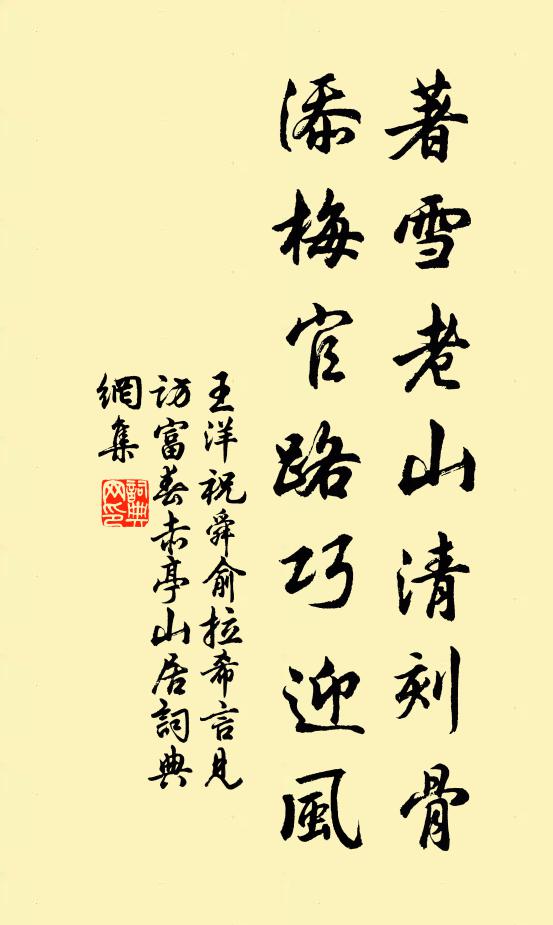 著雪老山清刻骨
添梅官路巧迎風
王洋祝舜俞拉希言見
訪富春赤亭山居詞典
網集
詞典網印